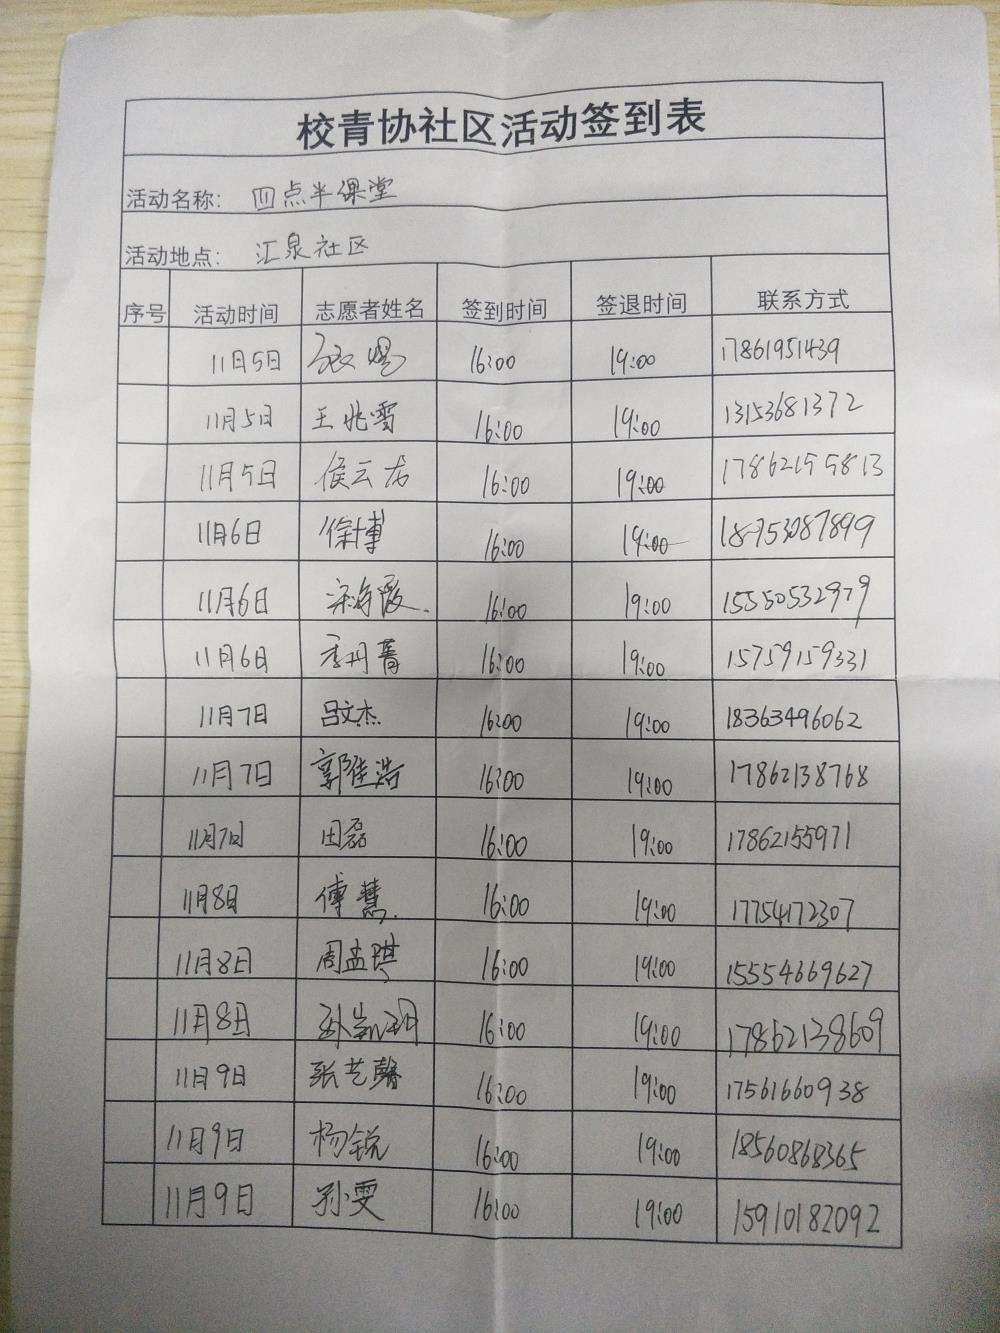 校青协社区活动签到表
活动名称: 四点半课堂
活动地点: 汇泉社区
序号 活动时间 志愿者姓名 签到时间 签退时间 联系方式
11月5日 16:00 19:00 17861951439
11月5日 王兆雪 16:00 19:00 13153681372
11月5日 侯云龙 16:00 19:00 17862155813
11月6日 徐博 16:00 19:00 18753087899
11月6日 宋海霞. 16:00 19:00 15550532979
11月6日 李丹菁 16:00 19:00 15759159331
11月7日 吕文杰 16:00 19:00 18363496062
11月7日 郭佳浩 16:00 19:00 17862138768
11月7日 田磊 16:00 19:00 17862155971
11月8日 傅慧. 16:00 19:00 17754172307
11月8日 周孟琪 16:00 19:00 15554669627
11月8日 孙凯玥 16:00 19:00 17862138609
11月9日 张艺馨 16:00 19:00 17561660938
11月9日 杨锐 16:00 19:00 18560868365
11月9日 孙雯 16:00 19:00 15910182092